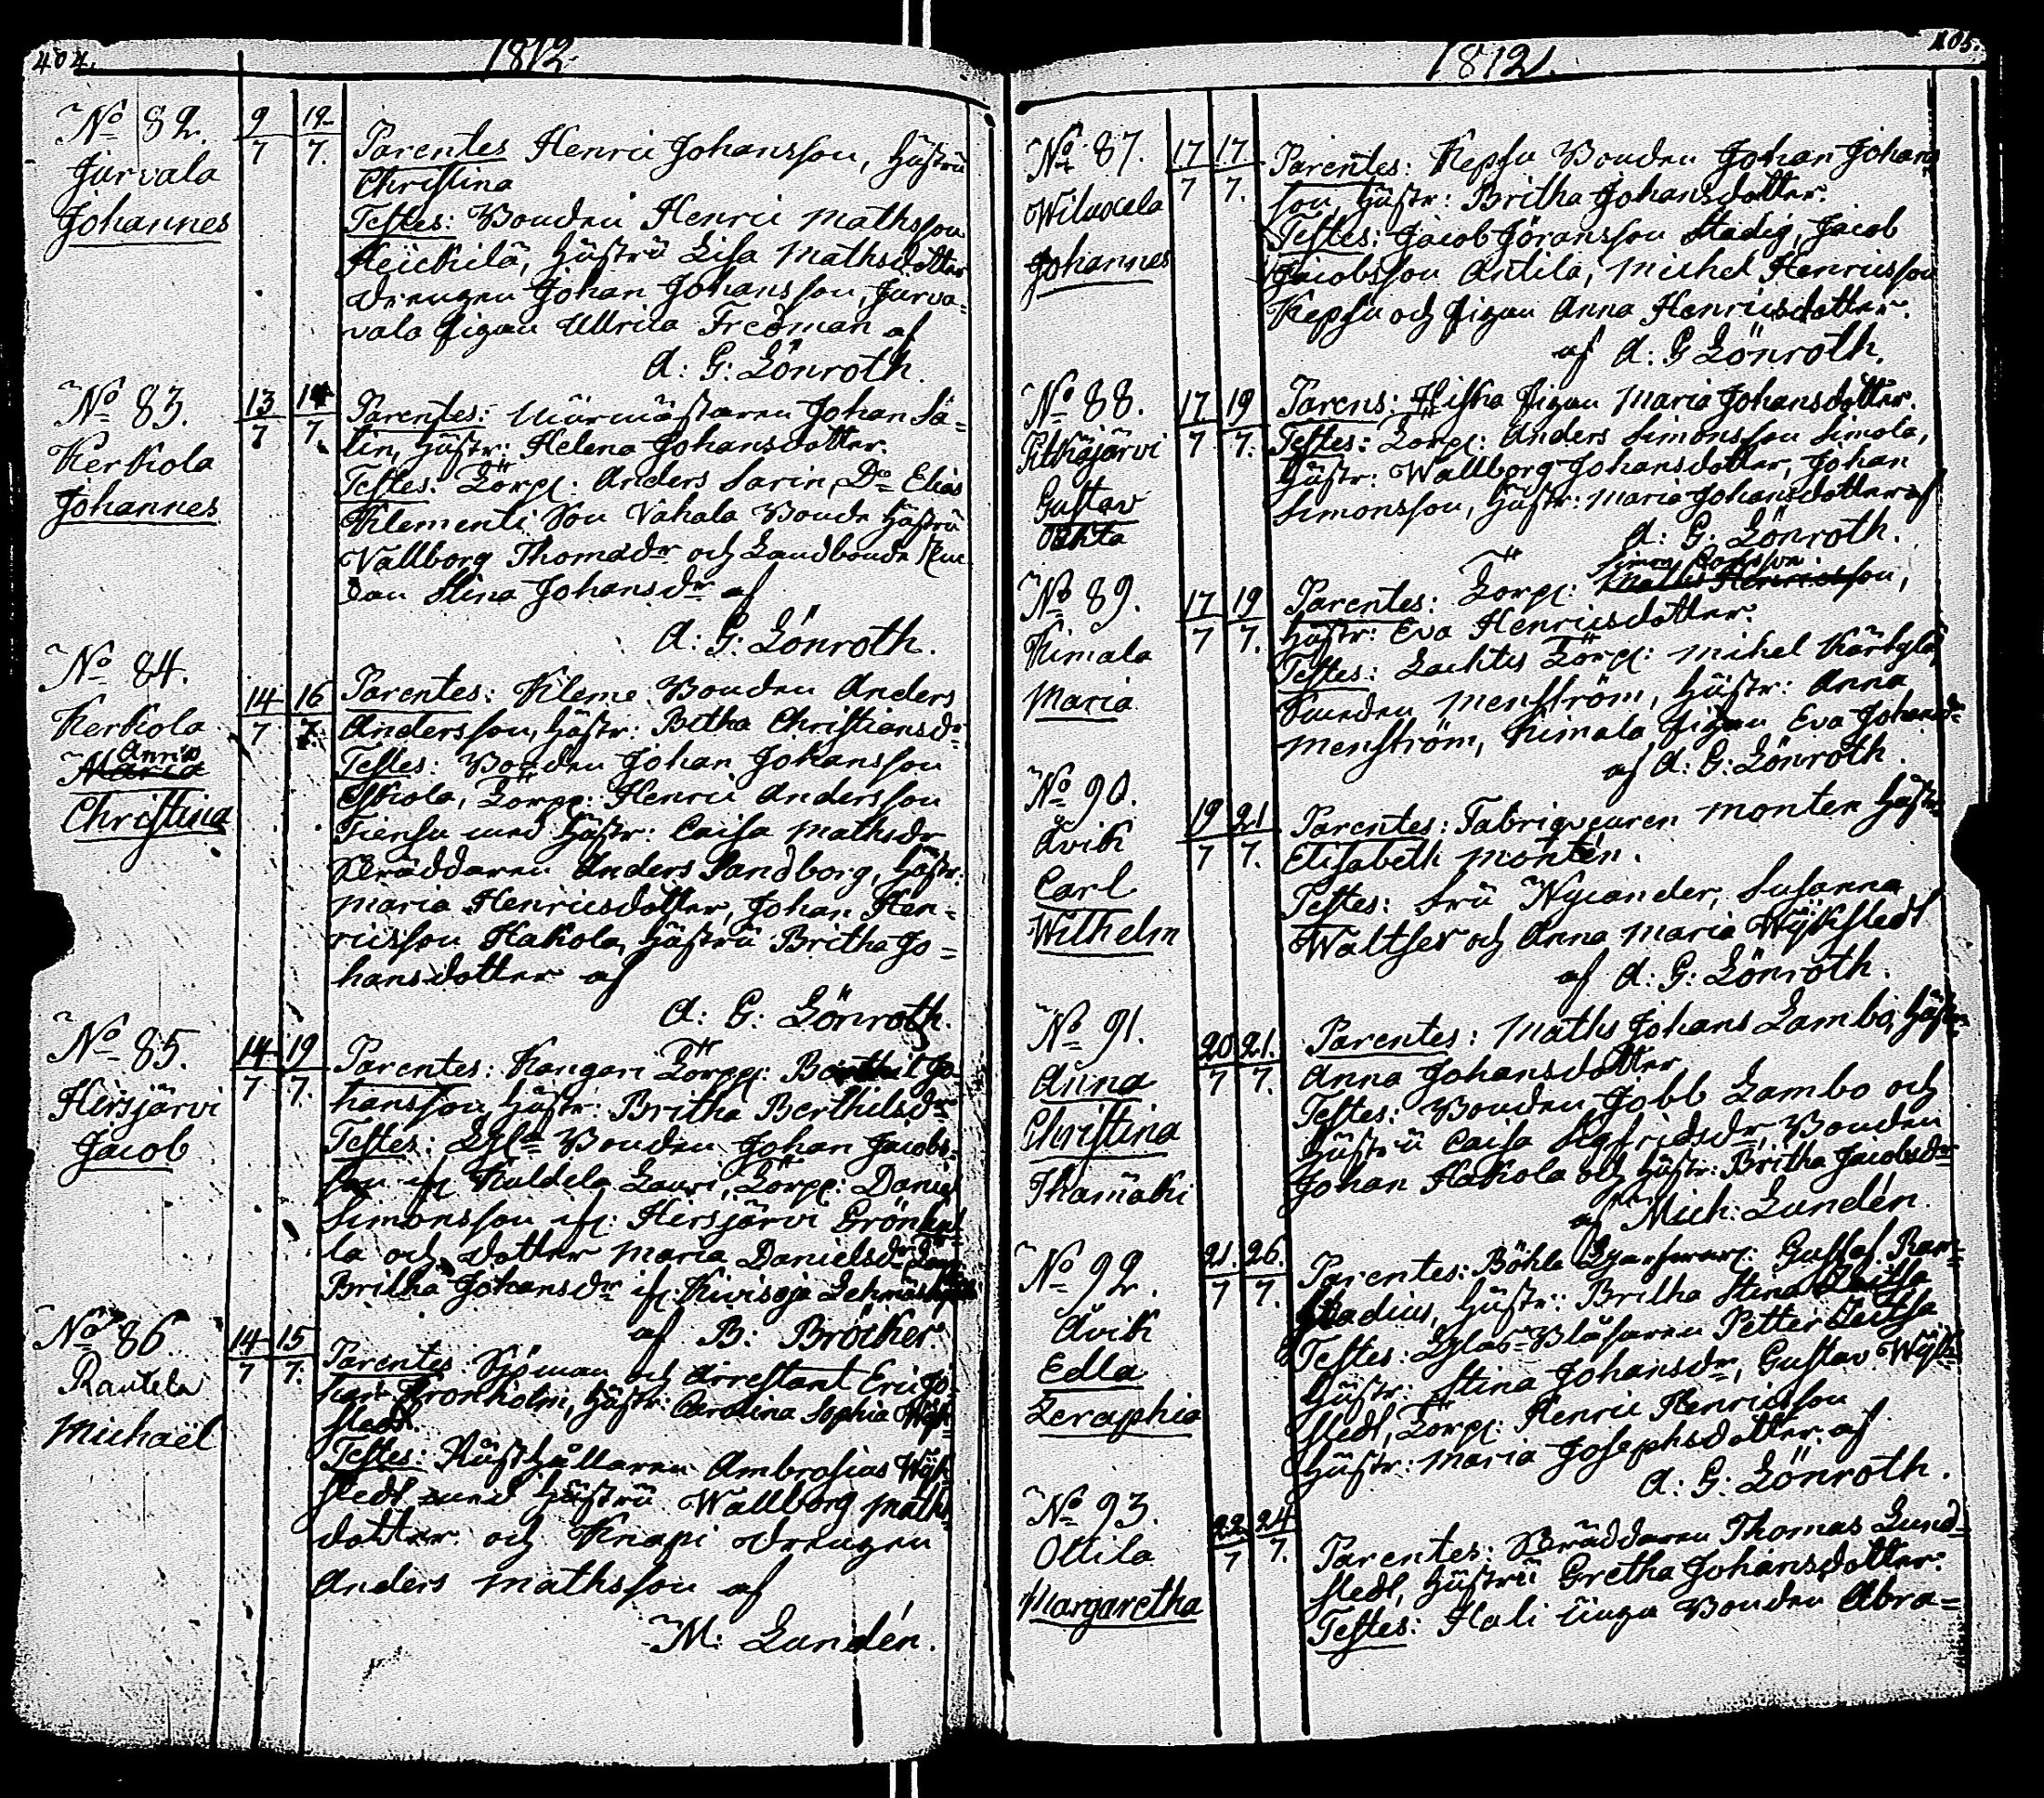 404.
1812.
No 82.
9/7
12/7.
Jurvala
Johannes
Parentes Henric Johansson, Hustru
Christina
Testes: Bonden Henric Mathsson
Heickilä, Hustru Lisa Mathsdotter
Drengen Johan Johansson, Jurva-
vala Pigan Ullrica Fredman af
A: G: Lönroth.
No 83.
13/7
14/7.
Kerkola
Johannes
Parentes: Murmästaren Johan Sa-
lin, Hustr: Helena Johansdotter.
Testes: Torp: Anders Sarin, Do Elias
Klementi Son Vahala Bonde Hustru
Vallborg Thomasdr och Landbonde
dan Stina Johansdr af
A: G: Lönroth.
No 84.
14/7
16/7.
Kerkola
Anna
Christina
Parentes: Kleme Bonden Anders
Andersson, Hustr: Britha Christiansdr
Testes: Bonden Johan Johansson
Eskola, Torp: Henric Andersson
Tiensu med Hustr: Caisa Mathsdr
Skräddaren Anders Sandborg, Hustr:
Maria Henricsdotter, Johan Hen-
ricsson Hakola, Hustru Britha Jo-
hansdotter af
A: G: Lönroth.
No 85.
14/7
19/7.
Hirsjärvi
Jacob
Parentes: Kangari Torp: Berthil Jo-
hansson Hustr: Britha Berthilsdr
Testes: Bonden Johan Jacobs-
son ifr Kuldela Lauri, Torp: Daniel
Simonsson ifr: Hirsjärvi
la och dotter Maria Danielsdr
Britha Johansdr ifr: Kivisoja
af B: Bröcker.
No 86.
14/7
15/7.
Rautela
Michaël
Parentes Sjöman och Arrestant Eric Jo-
Kronholm, Hustr: Carolina Sophia Wyk-
stedt.
Testes: Rusthållaren Ambrosius Wyk-
stedt med Hustru Wallborg Maths-
dotter och Knapi Drengen
Anders Mathsson af
M: Lundén.
405.
1812.
No 87.
17/7
17/7.
Johannes
Parentes: Kepsu Bonden Johan Johans
son, Hustr: Britha Johansdotter.
Testes: Jacob Jöransson Stadig, Jacob
Jacobsson Antila, Michel Henricsson
Kepsu och Pigan Anna Henricsdotter.
af A: G Lönroth.
No 88.
17/7
19/7.
Pitkäjärvi
Gustav
Parens: Hiska Pigan Maria Johansdotter.
Testes: Torp: Anders Simonsson Simola,
Hustr: Wallborg Johansdotter, Johan
Simonsson, Hustr: Maria Johansdotter af
A: G: Lönroth.
No 89.
17/7
19/7.
Kimala
Maria
Parentes: Torp: Simon
Hustr: Eva Henricsdotter.
Testes: Lachtis Torp: Michel Kärkylä,
Smeden Menström, Hustr: Anna
Menström, Kimala Pigan Eva Johansdr
af A: G: Lönroth.
No 90.
19/7
21/7.
Åvik
Carl
Wilhelm
Parentes: Fabriqveuren Monten Hustr:
Elisabeth Montén.
Testes: Fru Nycander, Susanna
Waltser och Anna Maria Wykstedt
af A: G: Lönroth.
No 91.
20/7
21./7.
Anna
Christina
Thamäki
Parentes: Maths Johans Lambo, Hustr:
Anna Johansdotter
Testes: Bonden Jobb Lambo och
Hustru Caisa Sigfridsdr, Bonden
Johan Hakola och Hustr: Britha Jacobsdr
af Mich: Lundén.
No 92.
21./7
26./7.
Åvik
Edla
Zeraphia
Parentes: Böhle Gustaf Ram-
stadius, Hustr: Britha Stina Zeitsa
Testes: Glas-Blåsaren Petter Zeitsa
Hustr: Stina Johansdr, Gustav Wyk-
stedt, Torp: Henric Henricsson
Hustr: Maria Josephsdotter af
A: G: Lönroth.
No 93.
22/7
24/7.
Ottila
Margaretha
Parentes: Skräddaren Thomas Lund-
stedt, Hustru Gretha Johansdotter.
Testes: Hali Unga Bonden Abra-